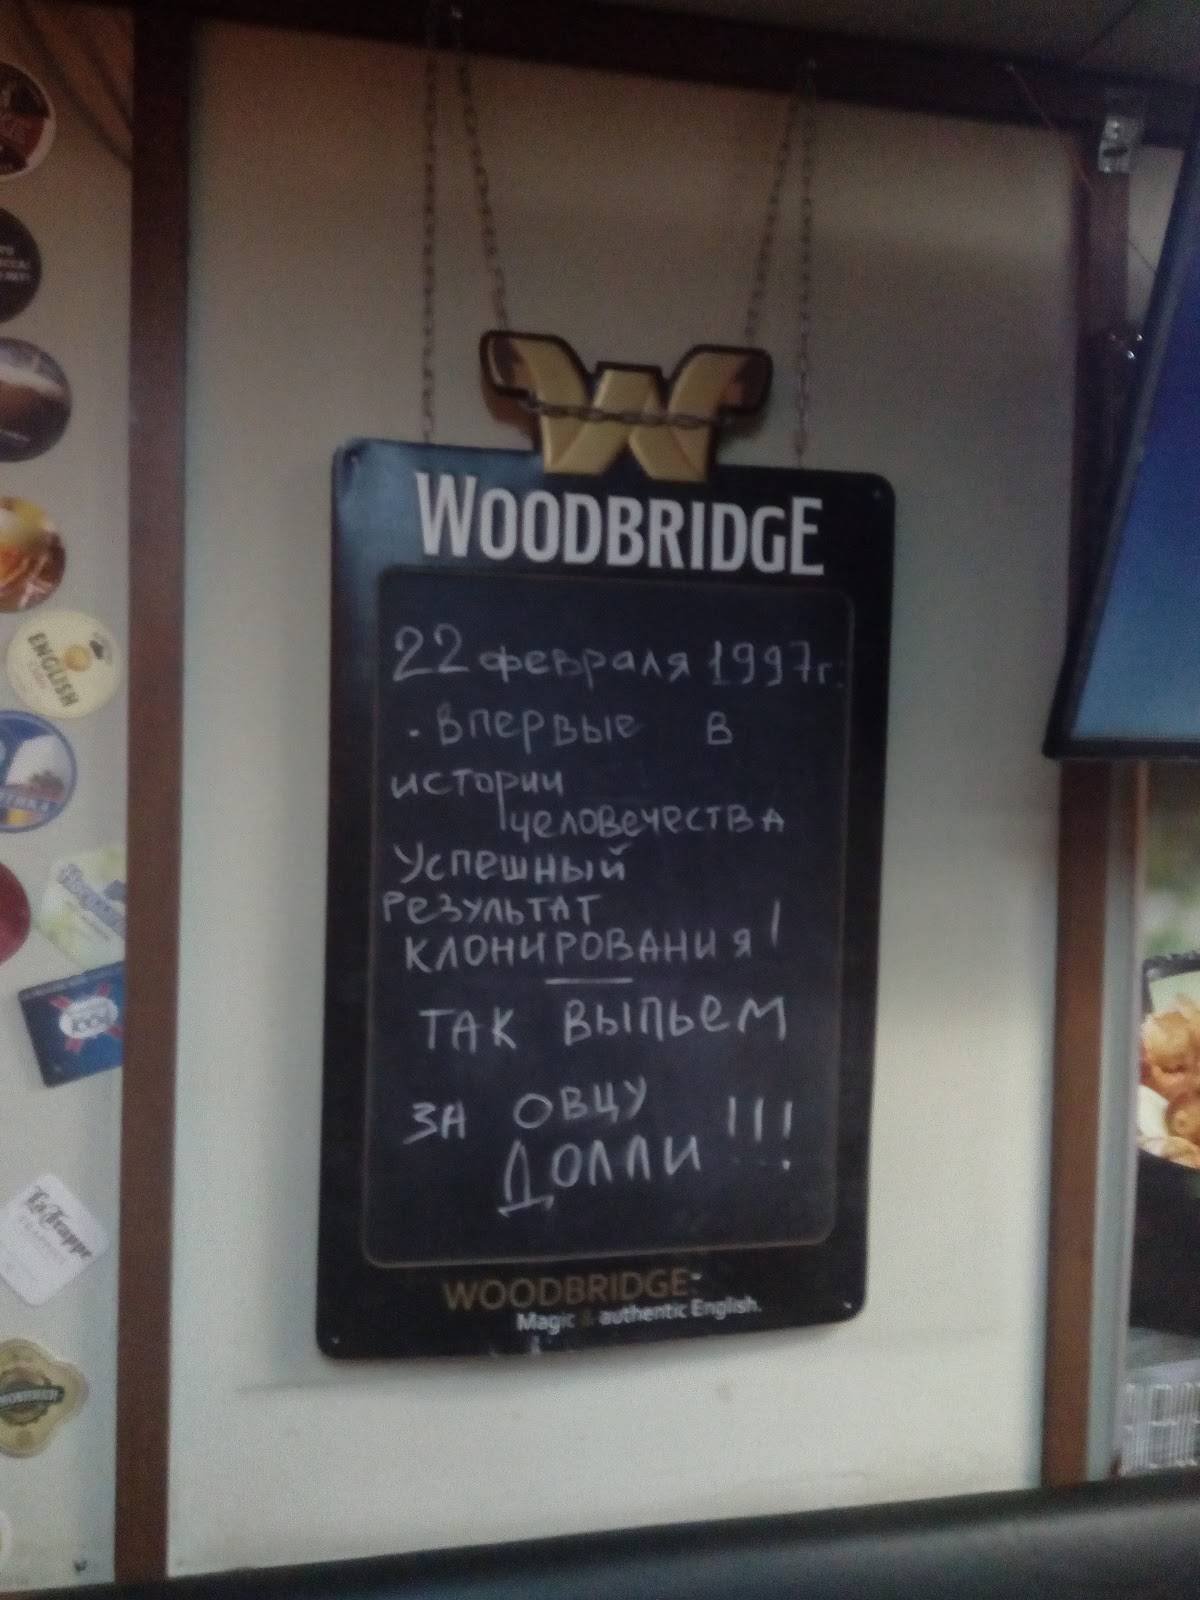 WOODBRIDGE
22 февраля 1997г.
· впервые в
истории
человечества
Успешный
результат
клонирования!
ТАК ВЫПЬЕМ
ЗА ОВЦУ
ДОЛЛИ !!!
WOODBRIDGE
Magic & authentic English.
ENGLISH
La Trappe